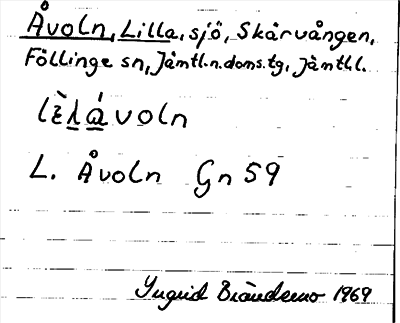 Åvoln, Lilla, sjö, Skärvången,
Föllinge sn, Jämtl.n.doms.tg, Jämtl.l.
L. Åvoln Gn 59
Ingrid 1969